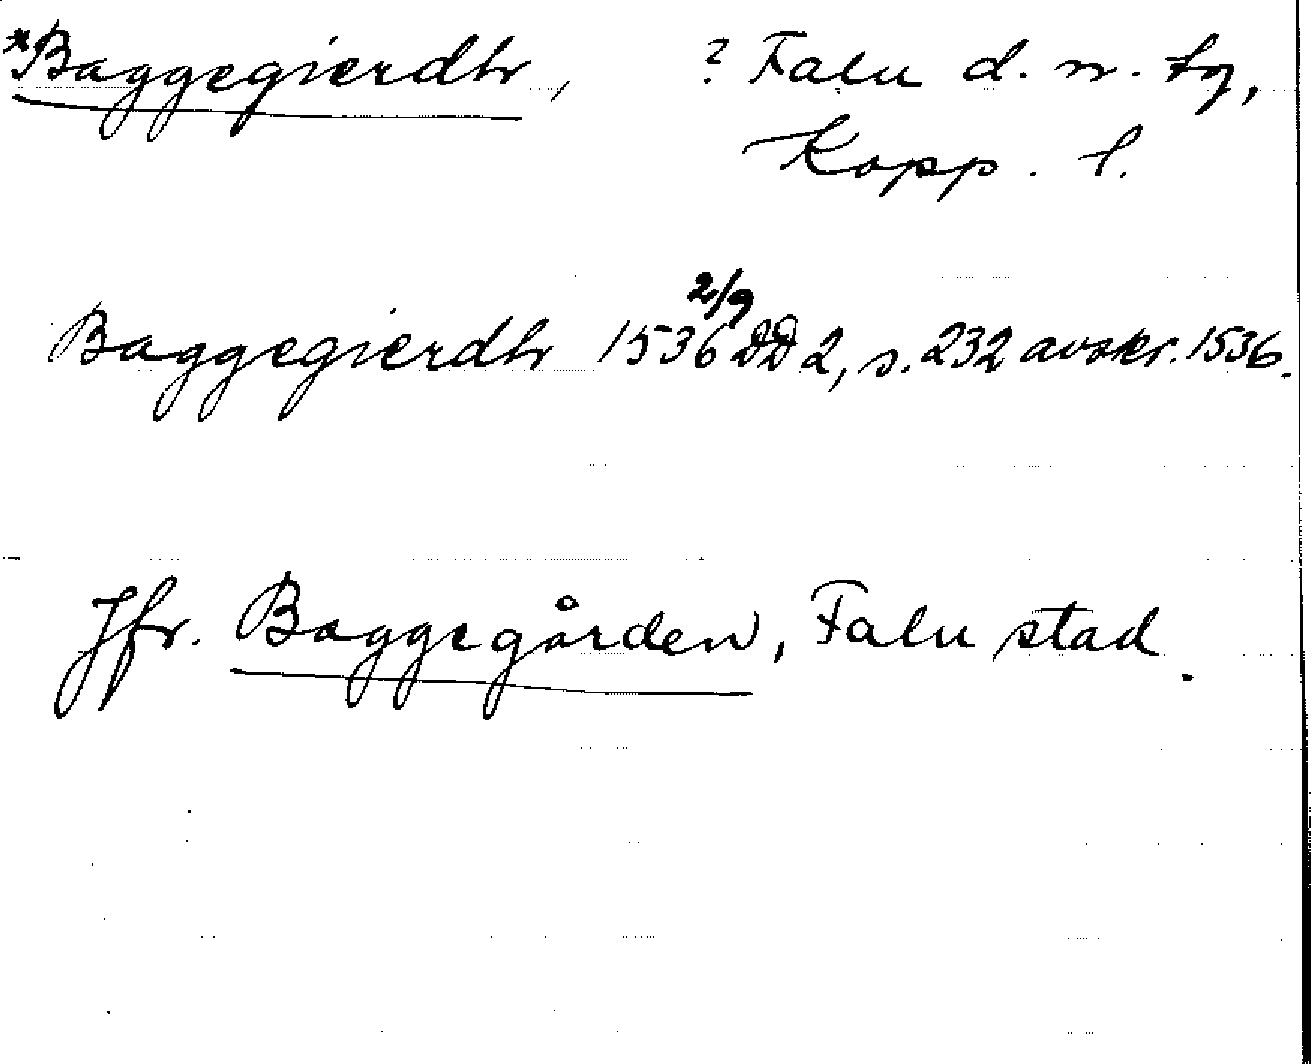 *Baggegierdhr, ? Falu d. n. tg,
Kopp. l.
Baggegierdhr 1536 2/9 DD 2, s. 232 avskr. 1536.
Jfr. Baggegården, Falu stad.